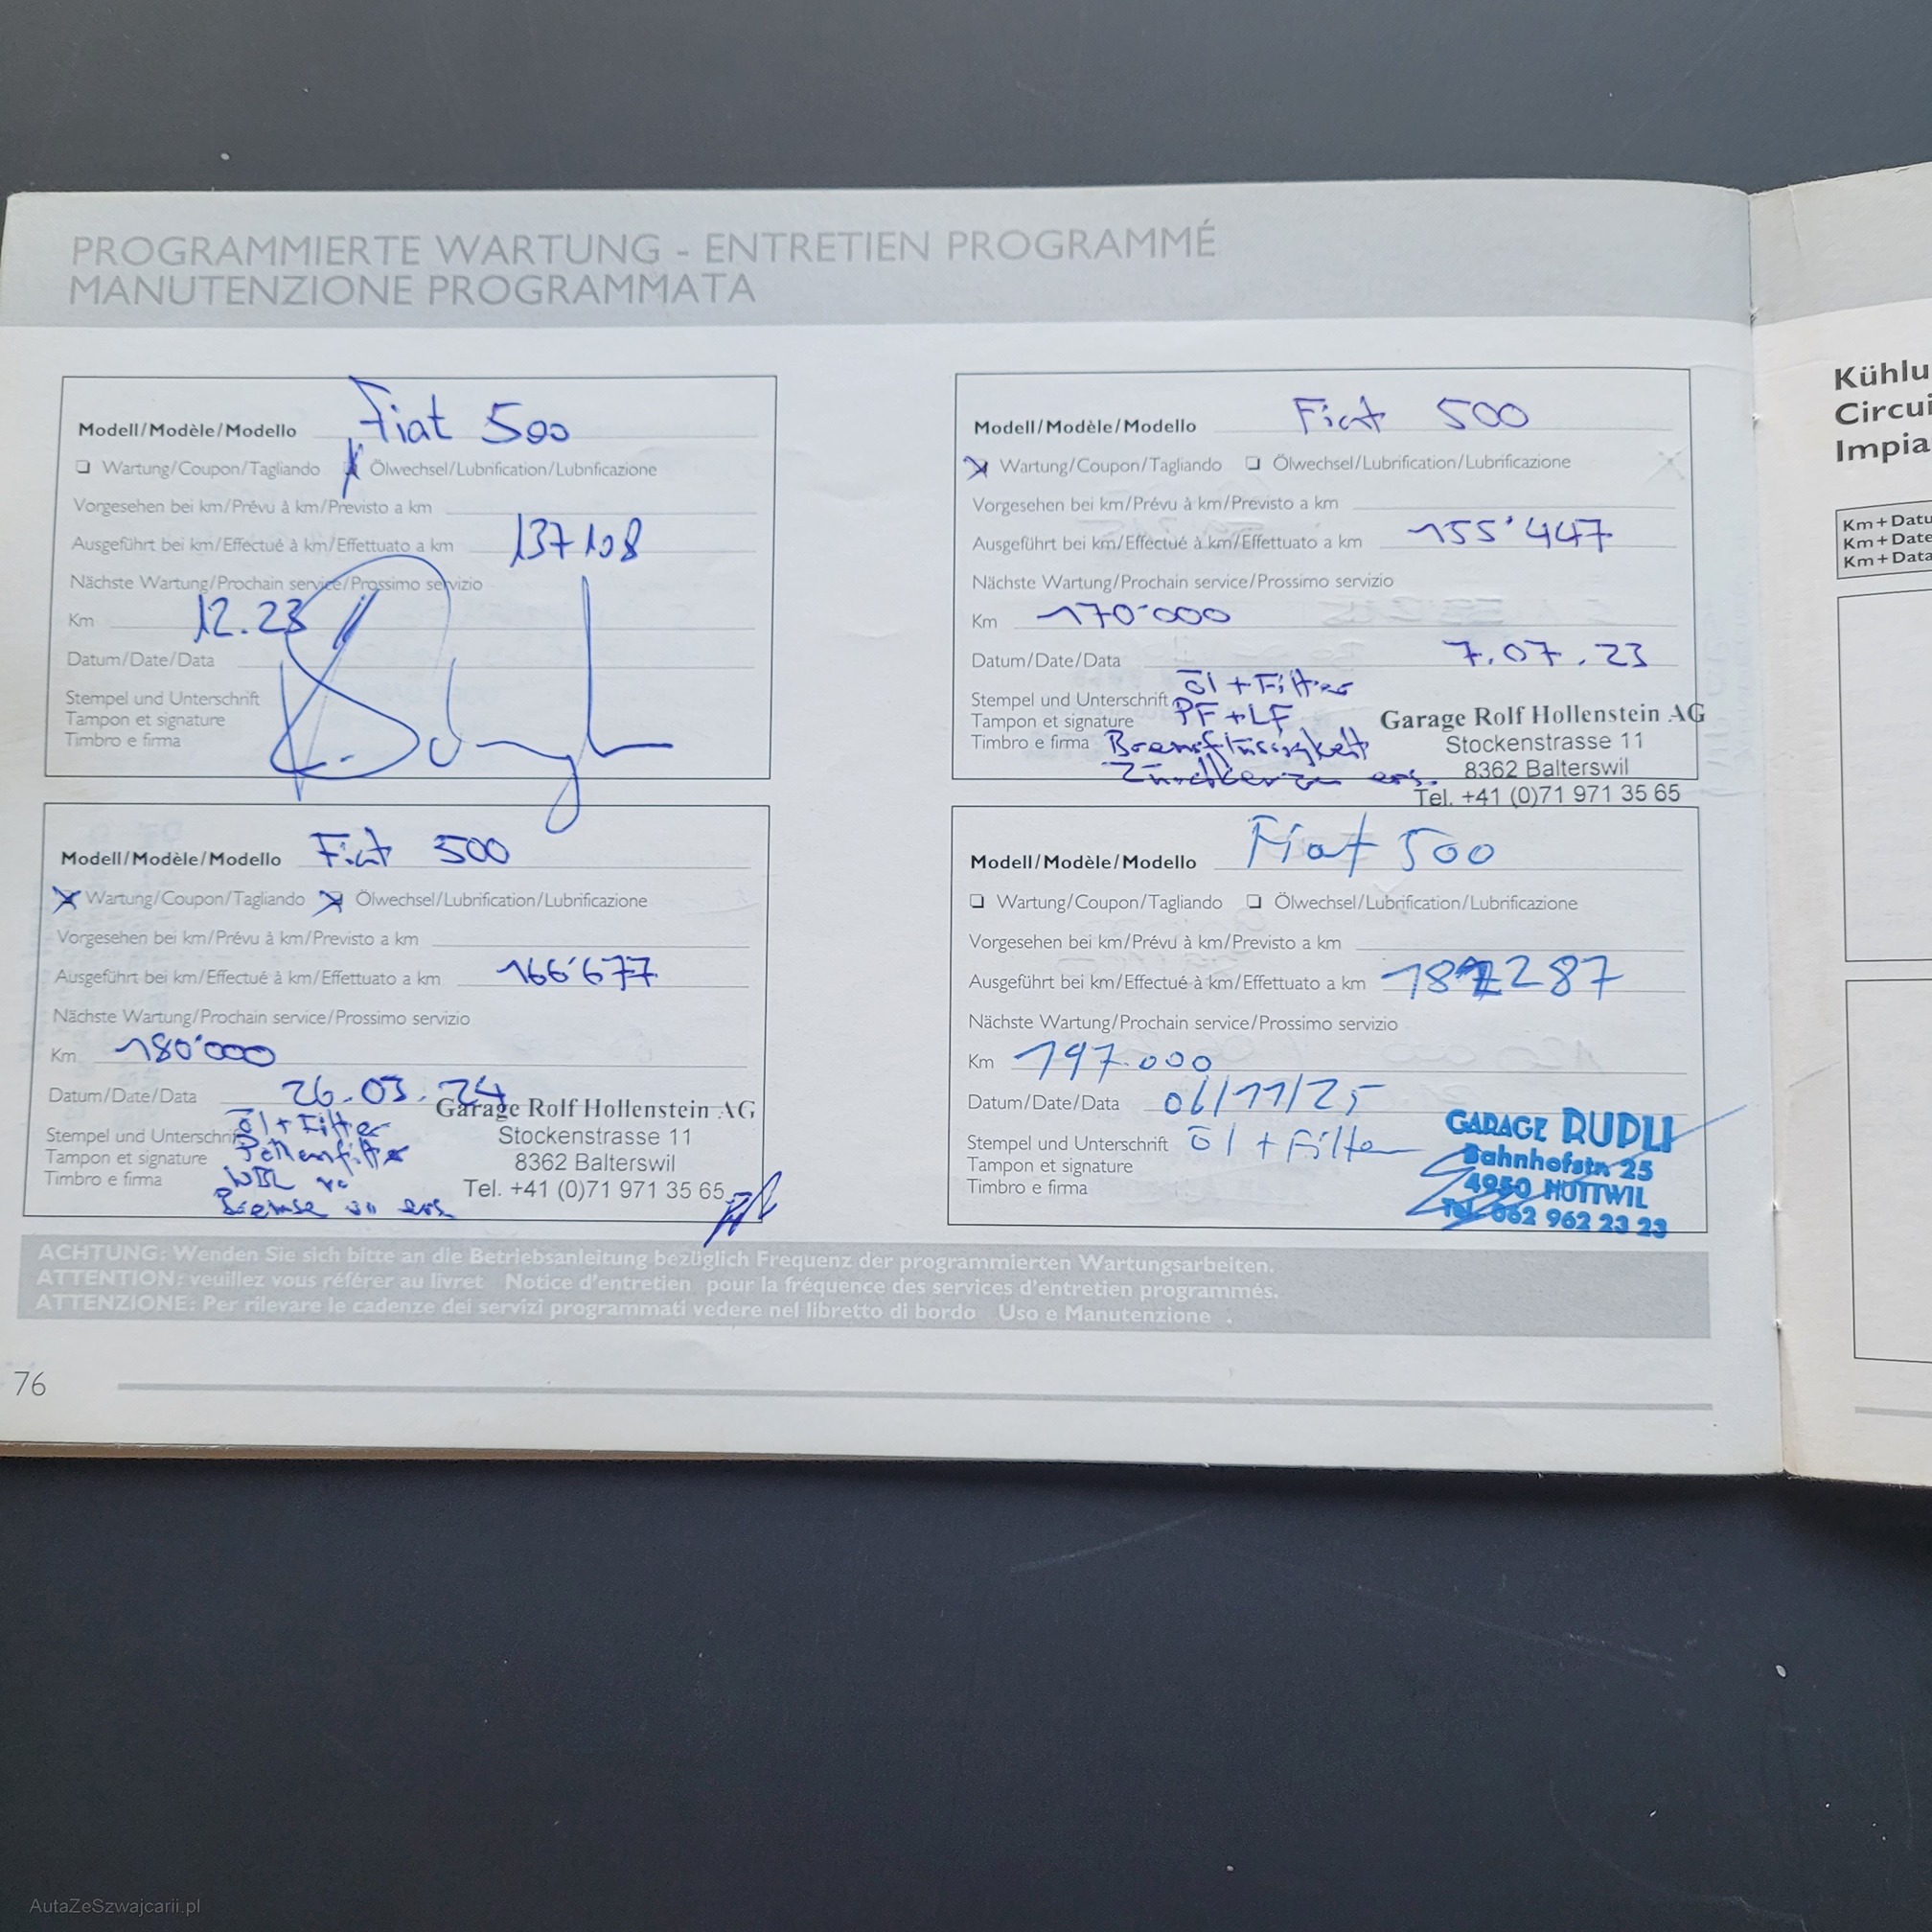 PROGRAMMIERTE WARTUNG - ENTRETIEN PROGRAMMÉ
MANUTENZIONE PROGRAMMATA
Modell/Modèle/Modello Fiat 500
Wartung/Coupon/Tagliando Ölwechsel/Lubrification/Lubrificazione
Vorgesehen bei km/Prévu à km/Previsto a km
Ausgeführt bei km/Effectué à km/Effettuato a km 137108
Nächste Wartung/Prochain service/Prossimo servizio
Km 12.23
Datum/Date/Data
Stempel und Unterschrift
Tampon et signature
Timbro e firma
Modell/Modèle/Modello Fiat 500
Wartung/Coupon/Tagliando Ölwechsel/Lubrification/Lubrificazione
Vorgesehen bei km/Prévu à km/Previsto a km
Ausgeführt bei km/Effectué à km/Effettuato a km 155'447
Nächste Wartung/Prochain service/Prossimo servizio
Km 170'000
Datum/Date/Data 7.07.23
Stempel und Unterschrift Öl + Filter
Tampon et signature PF + LF
Timbro e firma Bremsflüssigkeit
Zündkerzen ers.
Garage Rolf Hollenstein AG
Stockenstrasse 11
8362 Balterswil
Tel. +41 (0)71 971 35 65
Modell/Modèle/Modello Fiat 500
Wartung/Coupon/Tagliando Ölwechsel/Lubrification/Lubrificazione
Vorgesehen bei km/Prévu à km/Previsto a km
Ausgeführt bei km/Effectué à km/Effettuato a km 166'677
Nächste Wartung/Prochain service/Prossimo servizio
Km 180'000
Datum/Date/Data 26.03.24
Stempel und Unterschri Öl + Filter
Tampon et signature Pollenfilter
Timbro e firma
Bremse ers
Garage Rolf Hollenstein AG
Stockenstrasse 11
8362 Balterswil
Tel. +41 (0)71 971 35 65
Modell/Modèle/Modello Fiat 500
Wartung/Coupon/Tagliando Ölwechsel/Lubrification/Lubrificazione
Vorgesehen bei km/Prévu à km/Previsto a km
Ausgeführt bei km/Effectué à km/Effettuato a km
Nächste Wartung/Prochain service/Prossimo servizio
Km 197.000
Datum/Date/Data 06/11/25
Stempel und Unterschrift Öl + Filter
Tampon et signature
Timbro e firma
GARAGE RUDLI
Bahnhofstr. 25
4950 HUTTWIL
Tel. 062 962 23 23
ACHTUNG: Wenden Sie sich bitte an die Betriebsanleitung bezüglich Frequenz der programmierten Wartungsarbeiten.
ATTENTION: veuillez vous référer au livret Notice d'entretien pour la fréquence des services d'entretien programmés.
ATTENZIONE: Per rilevare le cadenze dei servizi programmati vedere nel libretto di bordo Uso e Manutenzione .
76
Kühlu
Circui
Impia
Km + Datu
Km + Date
Km + Data
AutaZeSzwajcarii.pl